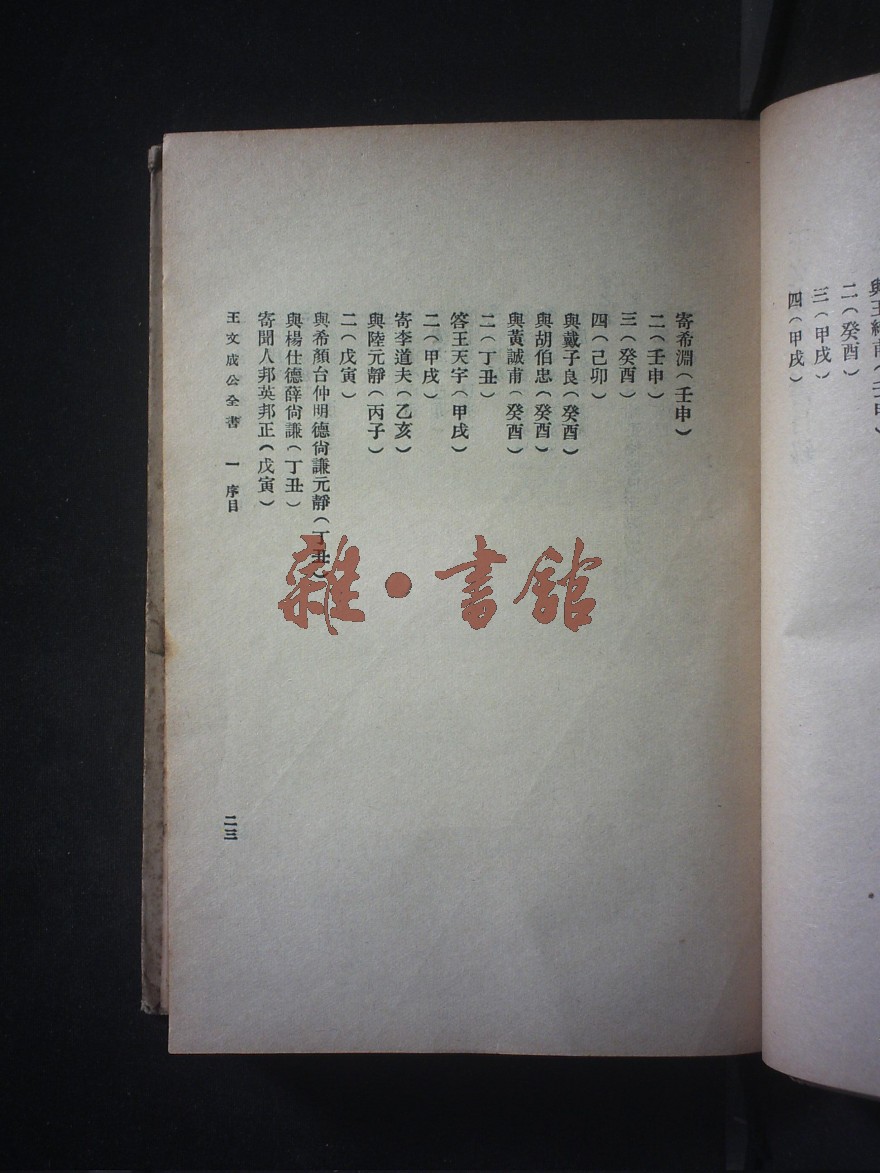 與王純甫（壬申）
二（癸酉）
三（甲戌）
四（甲戌）
寄希淵（壬申）
二（壬申）
三（癸酉）
四（己卯）
與戴子良（癸酉）
與胡伯忠（癸酉）
與黃誠甫（癸酉）
二（丁丑）
答王天宇（甲戌）
二（甲戌）
寄李道夫（乙亥）
與陸元靜（丙子）
二（戊寅）
與希顏台仲明德尙謙元靜（丁丑）
與楊仕德薛尙謙（丁丑）
寄聞人邦英邦正（戊寅）
王文成公全書　一　序目
二三
雜·書館